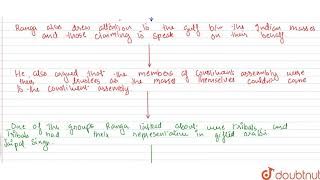 Ranga also drew attention to the gulf b/w the Indian masses
and those claiming to speak on their behalf
He also argued that the members of Constituent assembly were
their trustees as the masses themselves couldn't come
to the constituent assembly
One of the groups Ranga talked about were tribals and
tribals had their representative in gifted orator
Jaipal Singh.
doubtnut